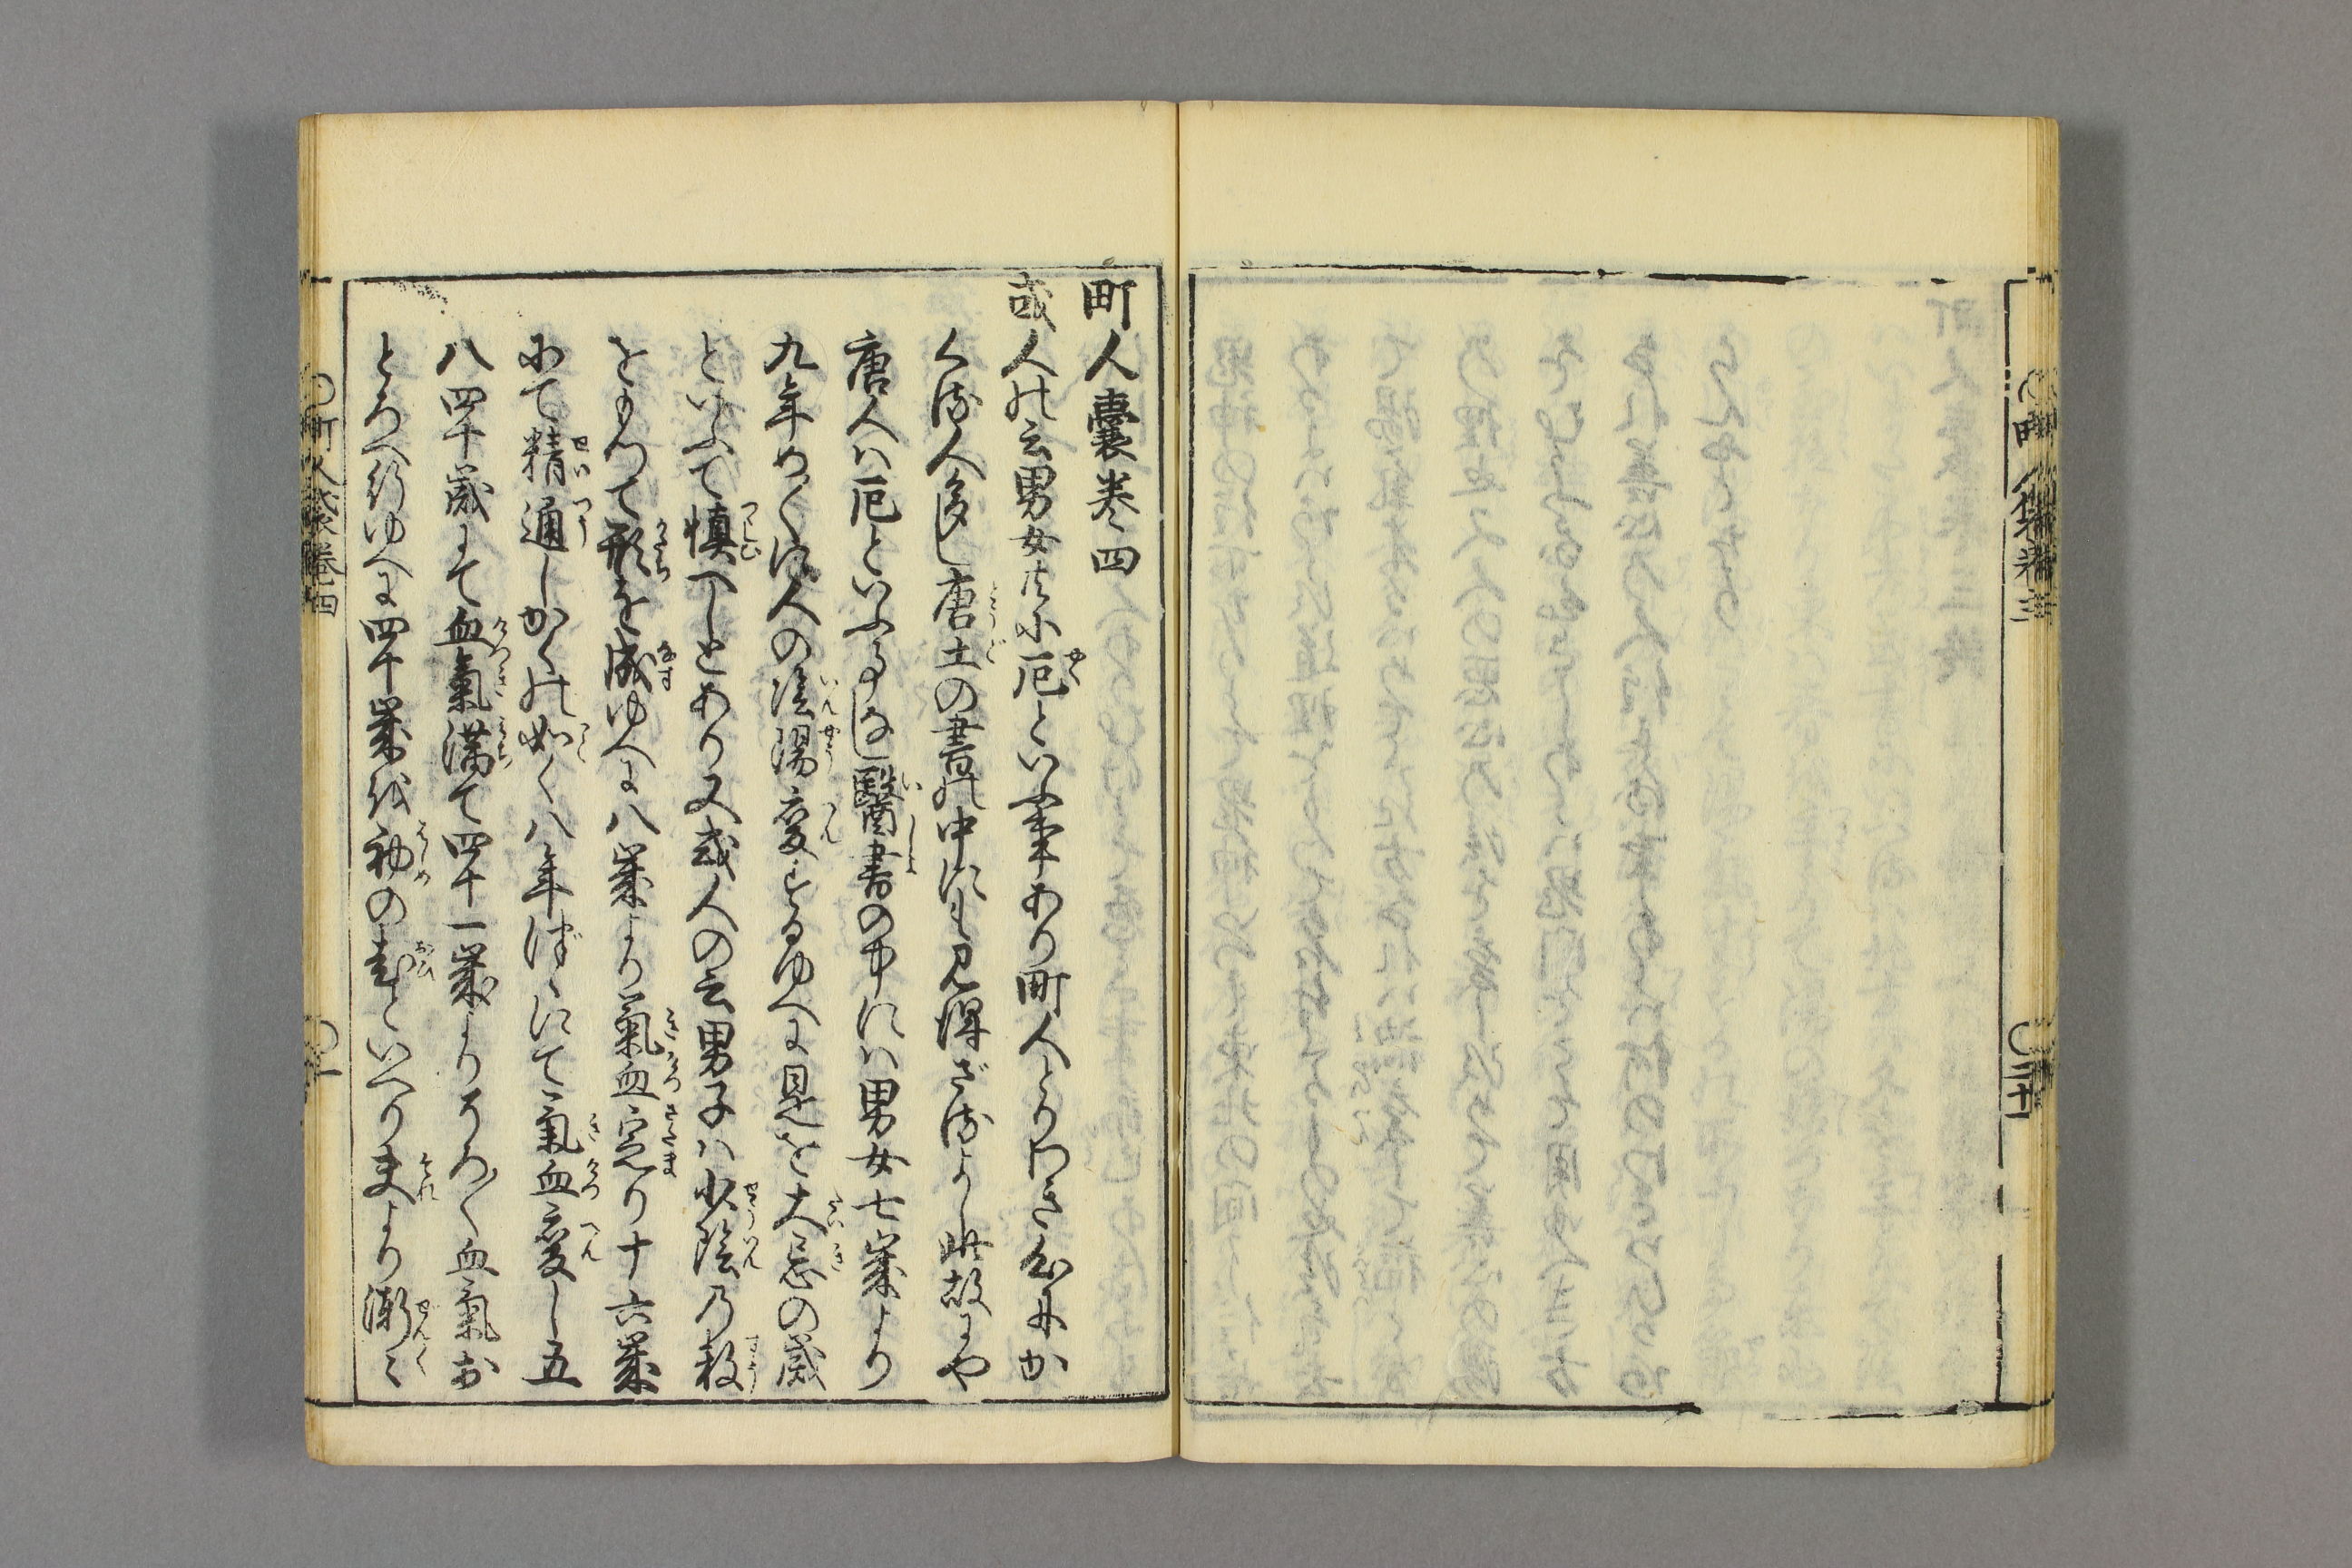 町人嚢巻四
或人の云男女共に厄といふ事あり町人とりわき心にか
くる人多し唐土の書の中にも見得ざるよし此故にや
唐人ハ厄といふ事なし醫書の中にハ男女七歳より
九年めくに人の陰陽変ずるゆへに是を大忌の歳
といふて慎へしとあり又或人の云男子ハ少陰の数
をもつて形を成ゆへに八歳より氣血定り十六歳
にて精通しかくの如く八年つゝにて氣血変し五
八四十歳にて血氣満て四十一歳よりそろ〳〵血氣お
とろへ行ゆへに四十歳を初の老といへり夫より漸〻
〇町人袋巻四 〇一
〇町人袋巻三 〇二十